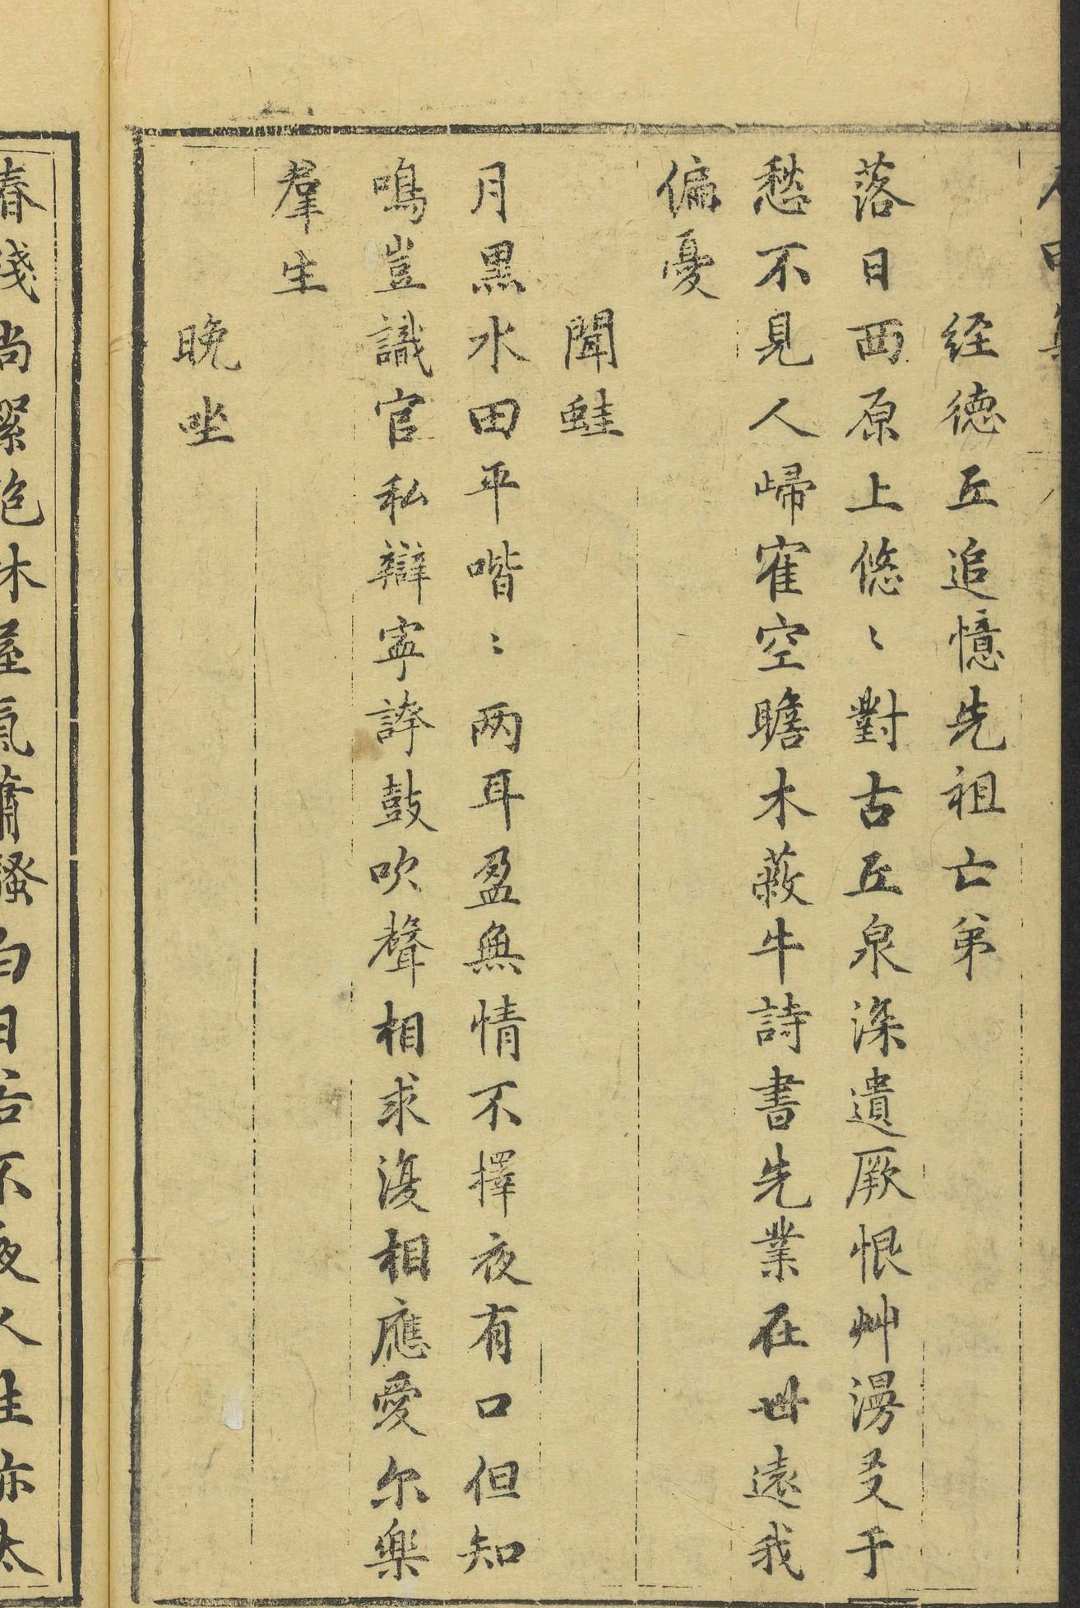 经德丘追憶先祖亡弟
落日西原上悠〻對古丘泉深遺厥恨艸漫于
愁不見人歸寉空瞻木蔽牛詩書先業在世遠我
偏憂
聞蛙
月黒水田平喈〻两耳盈無情不擇夜有口但知
鳴豈識官私辯寧誇鼓吹聲相求復相應愛尔樂
羣生
晚坐
春淺尚袍林屋氣蕭騷白日苦不夜人生亦太